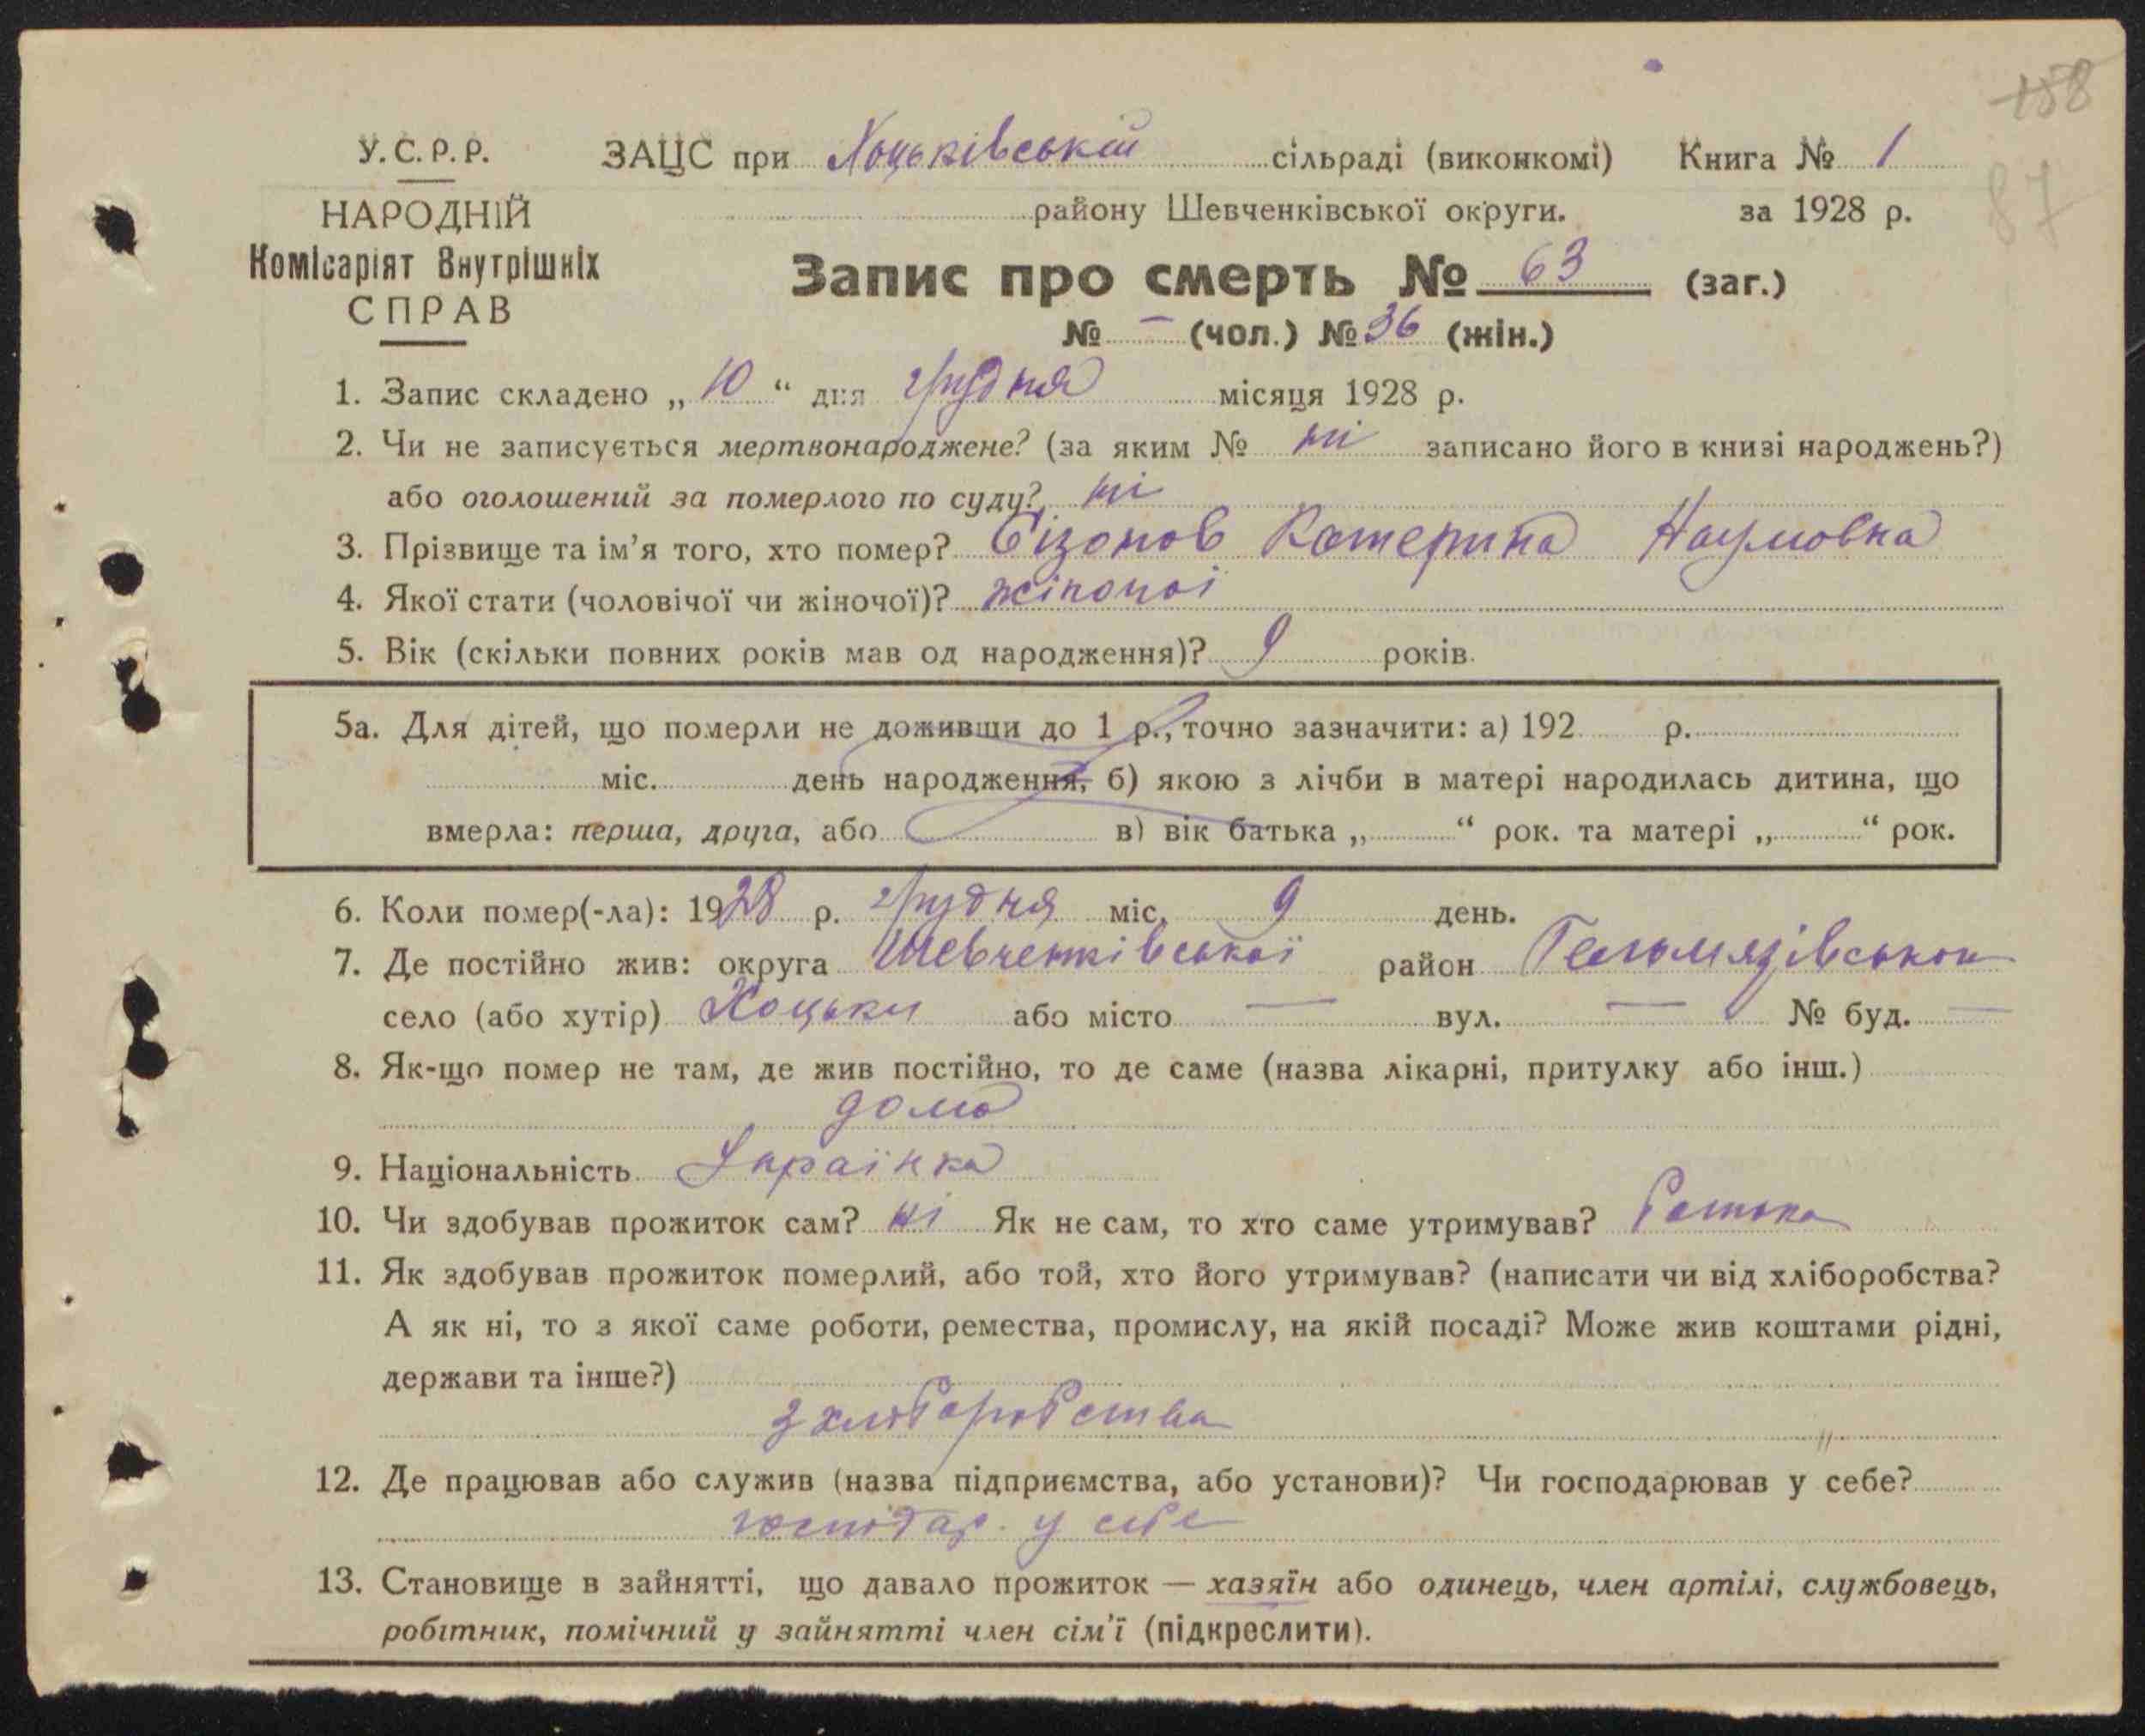 158
87
У.С.Р.Р. ЗАЦС при Хоцьківській сільраді (виконкомі) Книга № 1
НАРОДНІЙ району Шевченківської округи. за 1928 р.
Комісаріят Внутрішніх
СПРАВ
Запис про смерть № 63 (заг.)
№ — (чол.) № 36 (жін.)
1. Запис складено „ 10 “ дня грудня місяця 1928 р.
2. Чи не записується мертвонароджене? (за яким № ні записано його в книзі народжень?)
або оголошений за померлого по суду? ні
3. Прізвище та ім’я того, хто помер? Сізонов Катерина Наумовна
4. Якої стати (чоловічої чи жіночої)? жіночоі
5. Вік (скільки повних років мав од народження)? 9 років.
5а. Для дітей, що померли не доживши до 1 р., точно зазначити: а) 192 р.
міс. день народження, б) якою з лічби в матері народилась дитина, що
вмерла: перша, друга, або в) вік батька „ “ рок. та матері „ “ рок.
6. Коли помер(-ла): 1928 р. грудня міс. 9 день.
7. Де постійно жив: округа Шевченківської район Гельмязівськой
село (або хутір) Хоцьки або місто — вул. — № буд. —
8. Як-що помер не там, де жив постійно, то де саме (назва лікарні, притулку або інш.)
дома
9. Національність Українка
10. Чи здобував прожиток сам? ні Як не сам, то хто саме утримував? батько
11. Як здобував прожиток померлий, або той, хто його утримував? (написати чи від хліборобства?
А як ні, то з якої саме роботи, ремества, промислу, на якій посаді? Може жив коштами рідні,
держави та інше?)
з хліборобства
12. Де працював або служив (назва підприємства, або установи)? Чи господарював у себе?
господар. у себе
13. Становище в зайнятті, що давало прожиток — хазяїн або одинець, член артілі, службовець,
робітник, помічний у зайнятті член сім’ї (підкреслити).